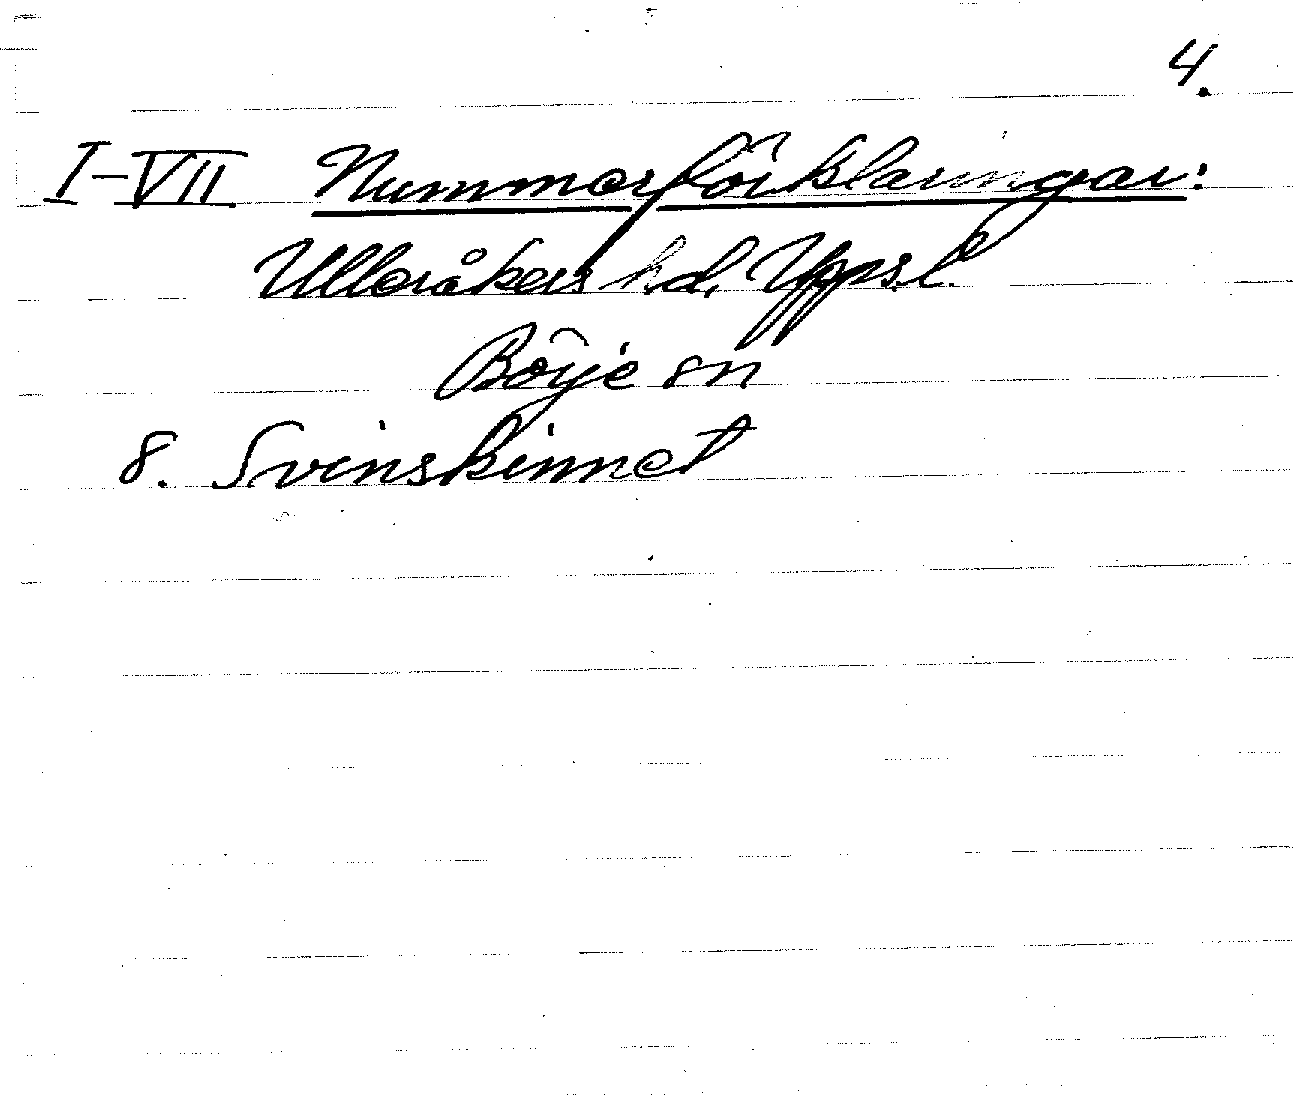 4.
I-VII Nummerförklaringar:
Ulleråkers hd, Uppsl.
Börje sn
8. Svinskinnet